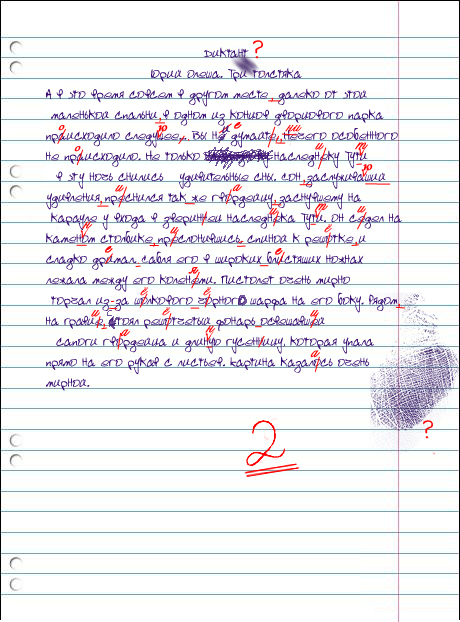 Диктант ?
Юрий Олеша. Три толстяка
А в это время совсем в другом месте далеко от этой
маленькой спальни, в одном из концов дворцового парка
праисходило следущее. Вы ни думайте, нечего особенного
не праисходило. Не только наследнику Тути
в эту ночь снились удивительные сны. сон заслуживаший
удивления преснился так же гвордейцу, заснувшему на
карауле у входа в зверинец наследника Тути. Он седел на
каменом столбике преслонившись спиной к решотке и
сладко дримал сабля его в широких блистящих ножнах
лежала между его коленеми. Пистолет очень мирно
торчал из-за шолкового чорного шарфа на его боку. Рядом
на гравие стоял решотчетый фонарь освещавший
сапоги гвордейца и длиную гусеницу. которая упала
прямо на его рукав с листьев. картина казалось очень
мирной.
2
?